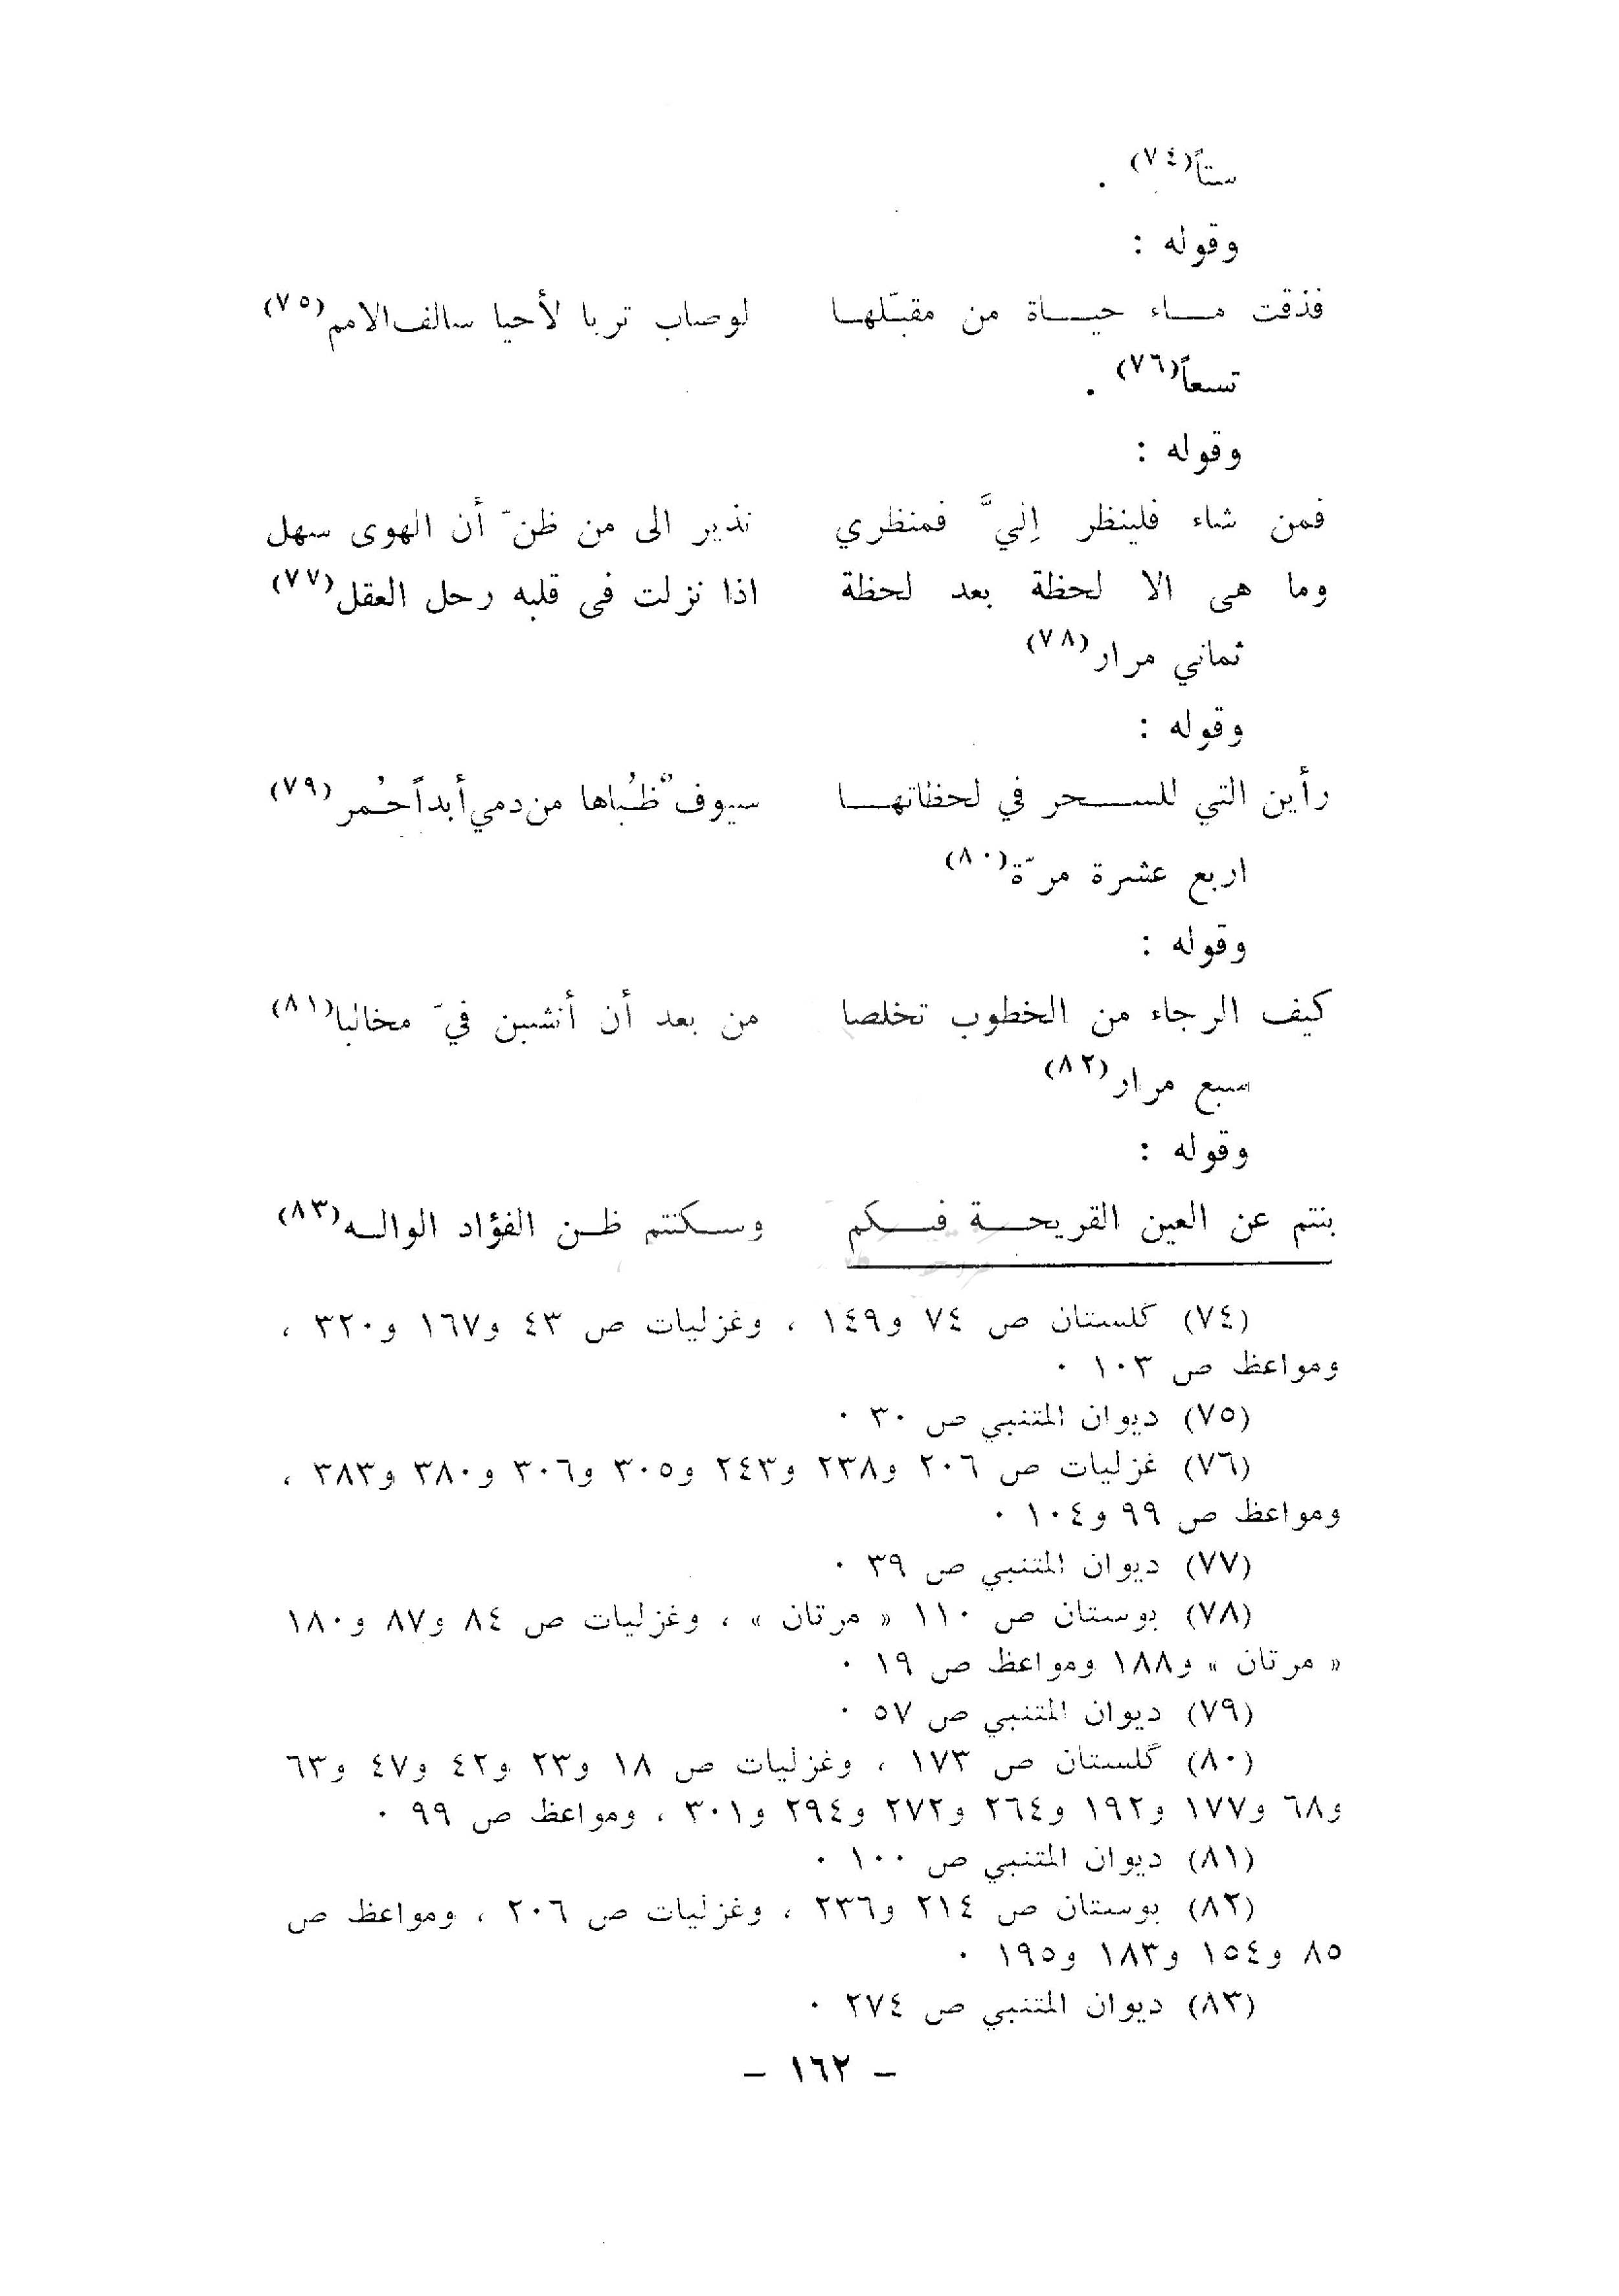 ستاً(٧٤) .
وقوله :
فذقت مــاء حيــاة من مقبّلها لوصاب تربا لأحيا سالف الامم(٧٥)
تسعاً(٧٦) .
وقوله :
فمن شاء فلينظر إليَّ فمنظري نذير الى من ظنّ أن الهوى سهل
وما هى الا لحظة بعد لحظة اذا نزلت فى قلبه رحل العقل(٧٧)
ثماني مرار(٧٨)
وقوله :
رأين التي للســحر في لحظاتهــا سيوفٌ ظُباها من دمي أبداً حُمر(٧٩)
اربع عشرة مرّة(٨٠)
وقوله :
كيف الرجاء من الخطوب تخلصا من بعد أن أنشبن فيّ مخالبا(٨١)
سبع مرار(٨٢)
وقوله :
بنتم عن العين القريحــة فيــكم وسـكنتم ظـن الفؤاد الوالـه(٨٣)
(٧٤) گلستان ص ٧٤ و١٤٩ ، وغزليات ص ٤٣ و١٦٧ و٣٢٠ ،
ومواعظ ص ١٠٣ ٠
(٧٥) ديوان المتنبي ص ٣٠ ٠
(٧٦) غزليات ص ٢٠٦ و٢٣٨ و٢٤٣ و٣٠٥ و٣٠٦ و٣٨٠ و٣٨٣ ،
ومواعظ ص ٩٩ و١٠٤ ٠
(٧٧) ديوان المتنبي ص ٣٩ ٠
(٧٨) بوستان ص ١١٠ « مرتان » ، وغزليات ص ٨٤ و٨٧ و١٨٠
« مرتان » و١٨٨ ومواعظ ص ١٩ ٠
(٧٩) ديوان المتنبي ص ٥٧ ٠
(٨٠) گلستان ص ١٧٣ ، وغزليات ص ١٨ و٢٣ و٤٢ و٤٧ و٦٣
و٦٨ و١٧٧ و١٩٢ و٢٦٤ و٢٧٢ و٢٩٤ و٣٠١ ، ومواعظ ص ٩٩ ٠
(٨١) ديوان المتنبي ص ١٠٠ ٠
(٨٢) بوستان ص ٢١٤ و٢٣٦ ، وغزليات ص ٢٠٦ ، ومواعظ ص
٨٥ و١٥٤ و١٨٣ و١٩٥ ٠
(٨٣) ديوان المتنبي ص ٢٧٤ ٠
– ١٦٢ –